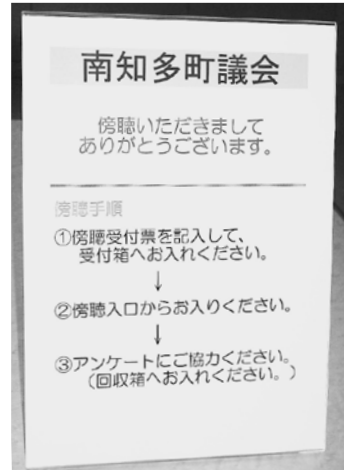 南知多町議会
傍聴いただきまして
ありがとうございます。
傍聴手順
①傍聴受付票を記入して、
受付箱へお入れください。
↓
②傍聴入口からお入りください。
↓
③アンケートにご協力ください。
（回収箱へお入れください。）